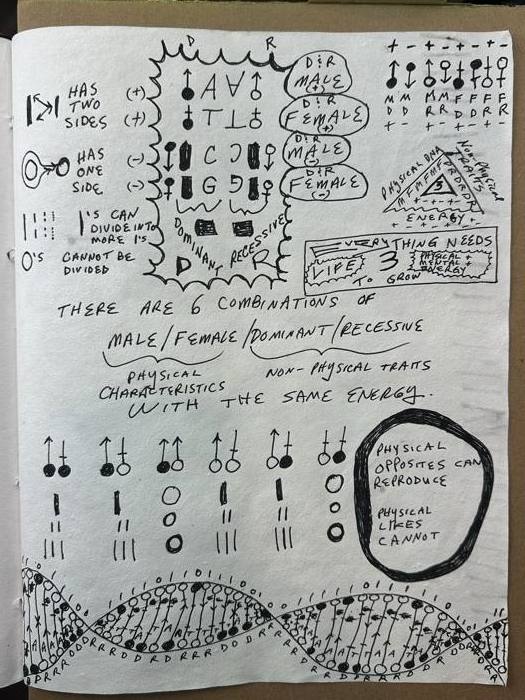 D R
HAS
TWO
SIDES
(+)
(+)
A A
T T
D & R
MALE
(+)
D & R
FEMALE
(+)
HAS
ONE
SIDE
(-)
(-)
C C
G G
D & R
MALE
(-)
D & R
FEMALE
(-)
1'S CAN
DIVIDE INTO
MORE 1'S
0'S CANNOT BE
DIVIDED
DOMINANT RECESSIVE
D R
+ - + - + - + -
M M M M F F F F
D D R R D D R R
+ - + - + - + -
PHYSICAL DNA
NON-PHYSICAL
TRAITS
MFMFMF
RDRDRD
3
ENERGY
EVERYTHING NEEDS
LIFE
3
PHYSICAL +
MENTAL +
ENERGY
TO GROW
THERE ARE 6 COMBINATIONS OF
MALE/FEMALE/DOMINANT/RECESSIVE
PHYSICAL
CHARACTERISTICS
NON-PHYSICAL TRAITS
WITH THE SAME ENERGY.
PHYSICAL
OPPOSITES CAN
REPRODUCE
PHYSICAL
LIKES
CANNOT